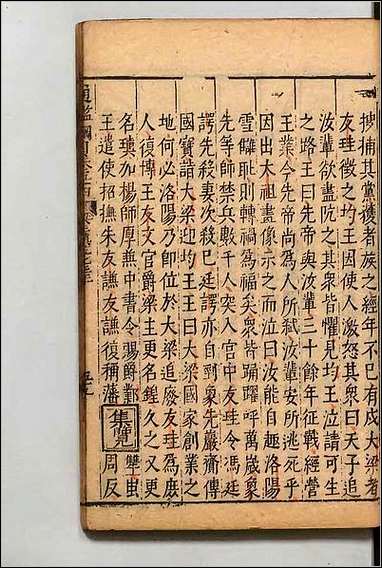 捕其黨獲者族之經年不巳有戍大梁者
友珪徵之均王因使人激怒其衆曰天子追
汝輩欲盡阬之其衆皆懼見均王泣請可生
之路王曰先帝與汝輩三十餘年征戰經營
王業今先帝尚爲人所弑汝輩安所逃死乎
因出太祖畫像示之而泣曰汝能自趣洛陽
雪讎耻則轉禍爲福矣衆皆踴躍呼萬歲象
先等帥禁兵數千人突入宮中友珪令馮廷
諤先殺妻次殺巳廷諤亦自剄象先嚴齎傳
國寶詣大梁迎均王王曰大梁國家創業之
地何必洛陽乃卽位於大梁追廢友珪爲庶
人復博王友文官爵梁主更名鍠久之又更
名瑱加楊師厚兼中書令賜爵鄴
王遣使招撫朱友謙友謙復稱藩
集覽
周反
通鑑綱目